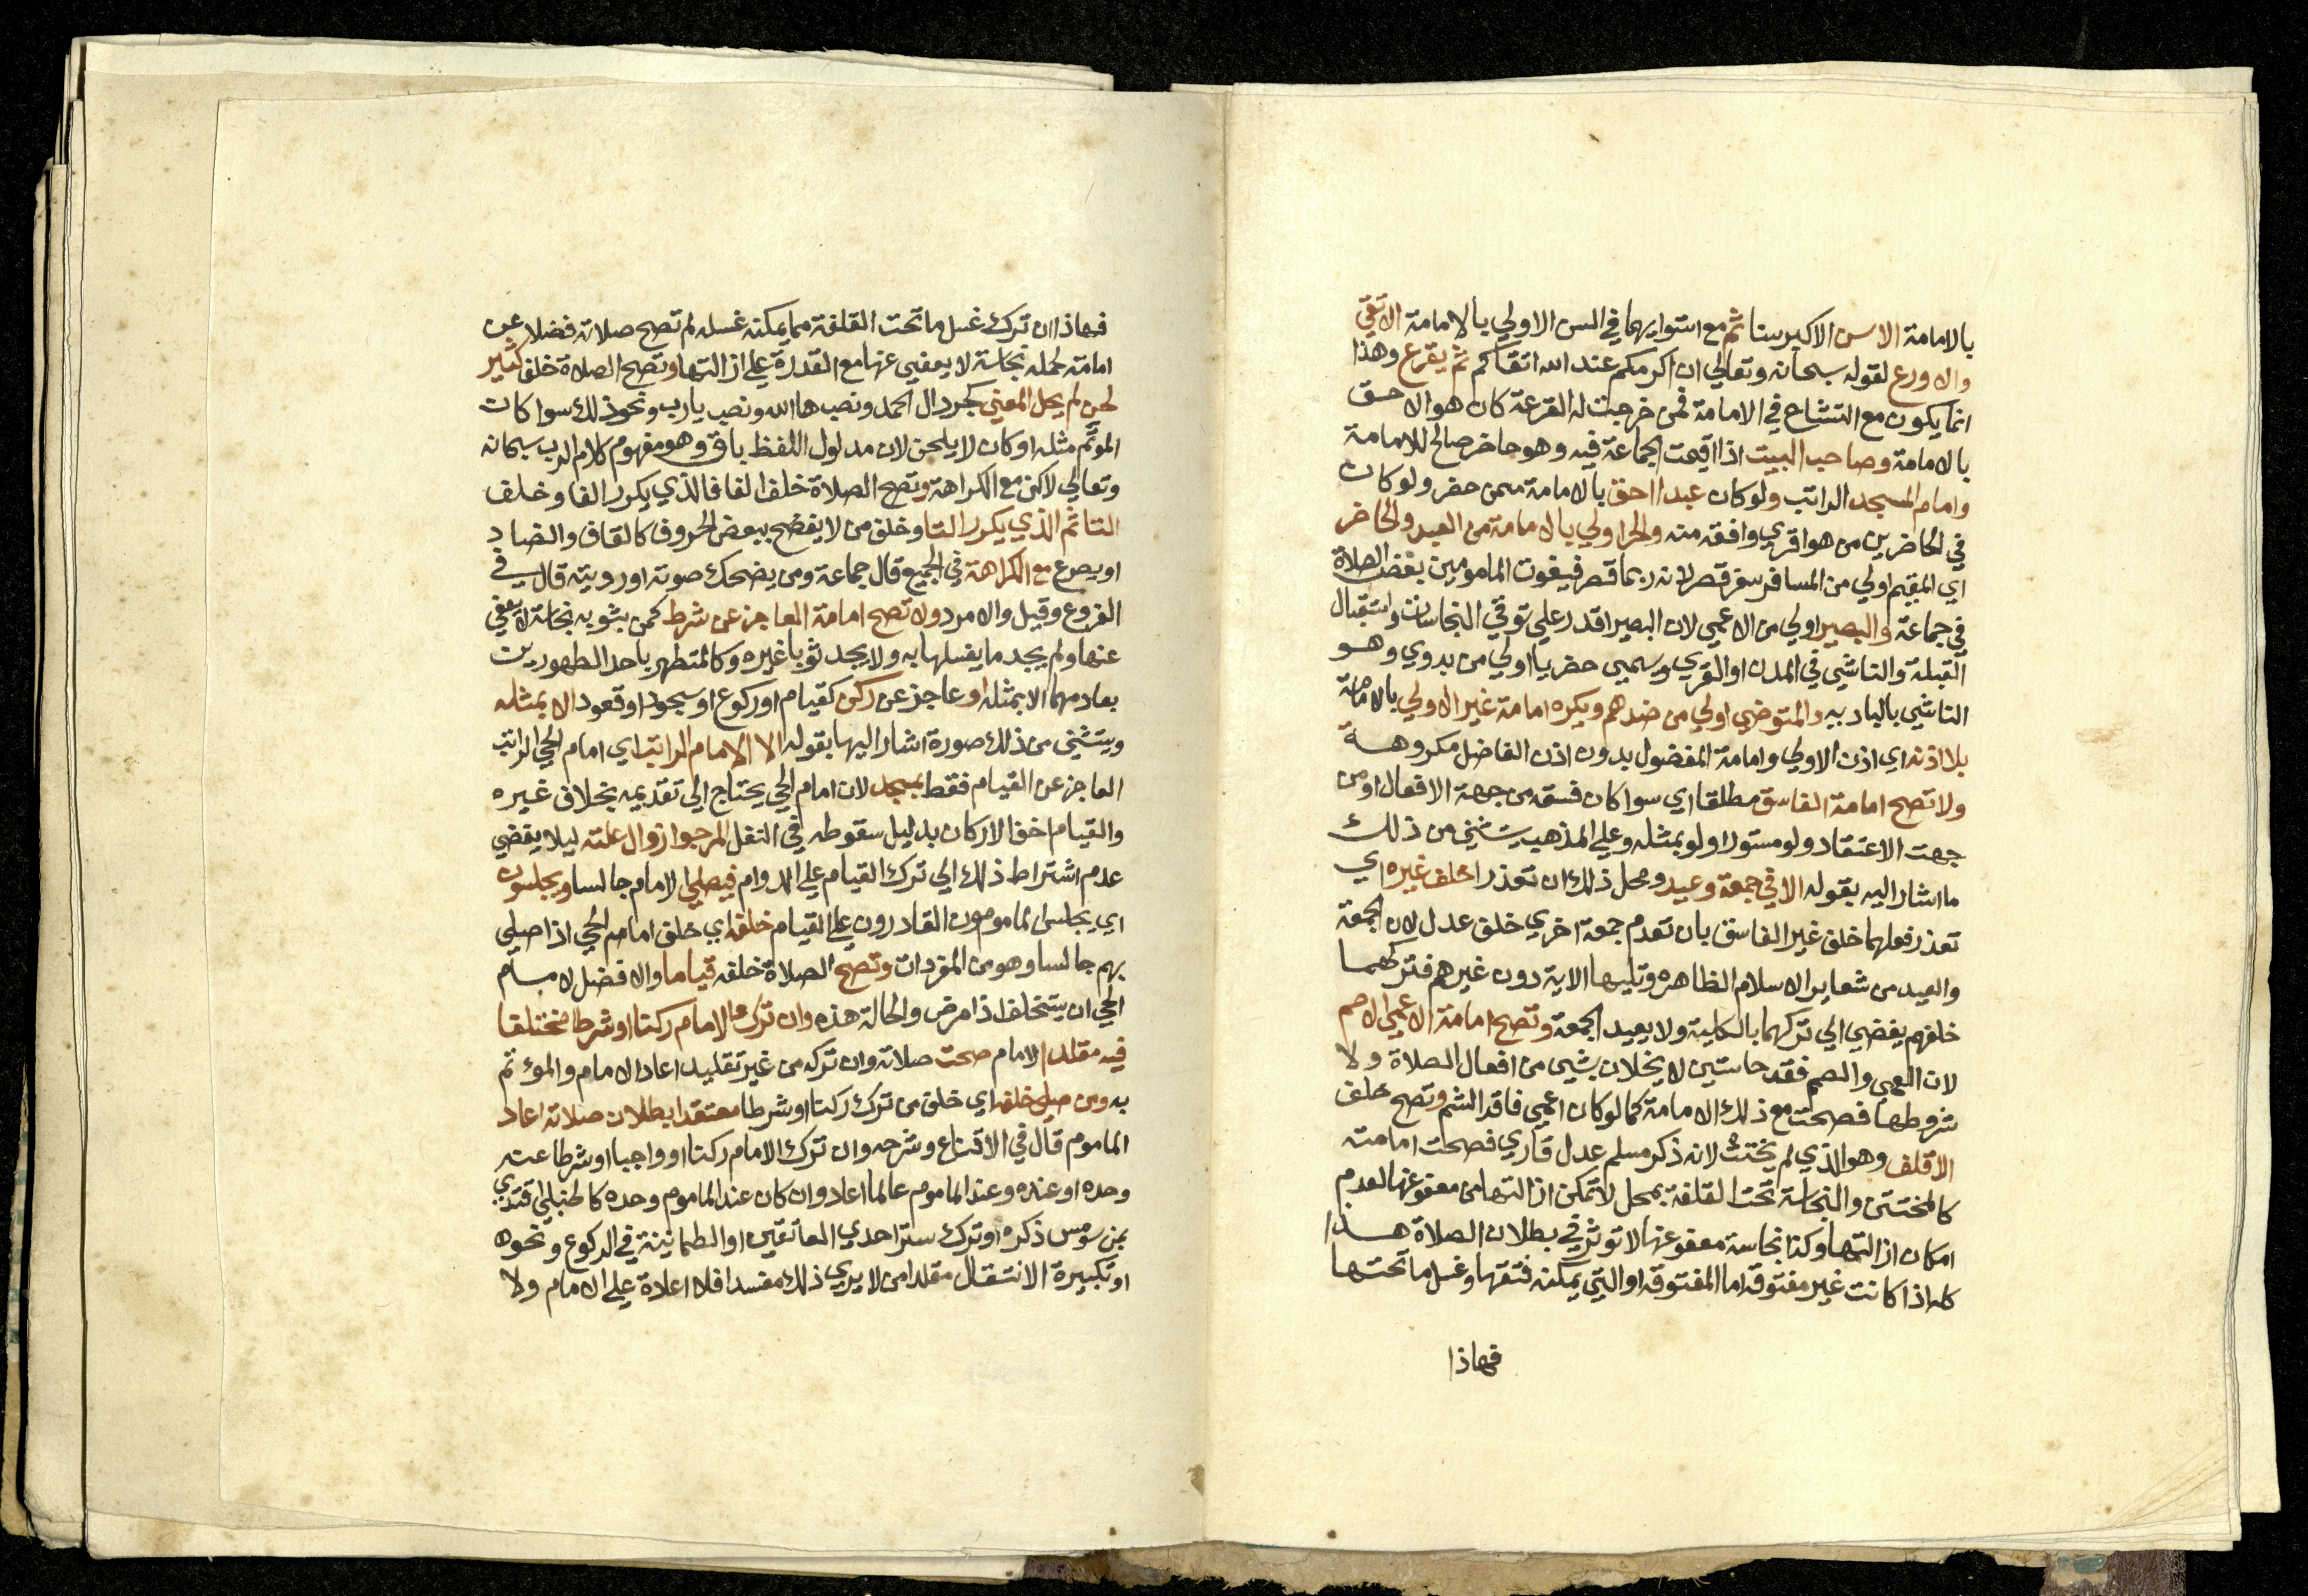 بالامامة الاسن الاكبر سنا ثم مع استوايهما في السن الاولي بالامامة الاتقي
والاورع لقوله سبحانه وتعالي ان اكرمكم عند الله اتقاكم ثم يقرع وهذا
انما يكون مع التشاح في الامامة فمن خرجت له القرعة كان هو الاحق
بالامامة وصاحب البيت اذا اقيمت الجماعة فيه وهو حاضر صالح للامامة
وامام المسجد الراتب ولو كان عبدا احق بالامامة ممن حضر ولو كان
في الحاضرين من هو اقري وافقه منه والحر اولي بالامامة من العبد والحاضر
اي المقيم اولي من المسافر سفر قصر لانه ربما قصر فيفوت المامومين بعض الصلاة
في جماعة والبصير اولي من الاعمي لان البصير اقدر علي توقي النجاسات واستقبال
القبلة والناشي في المدن او القري وسمي حضريا اولي من بدوي وهو
الناشي بالباديه والمتوضي اولي من ضدهم ويكره امامة غير الاولي بالامامة
بلا اذنه اي اذن الاولي وامامة المفضول بدون اذن الفاضل مكروهة
ولا تصح امامة الفاسق مطلقا اي سوا كان فسقه من جهة الافعال او من
جهت الاعتقاد ولو مستورا ولو بمثله وعلي المذهب يستثني من ذلك
ما اشار اليه بقوله الا في جمعة وعيد ومحل ذلك ان تعذرا خلف غيره اي
تعذر فعلهما خلف غير الفاسق بان تعدم جمعة اخري خلف عدل لان الجمعة
والعيد من شعاير الاسلام الظاهره وتليها الاية دون غيرهم فتركهما
خلفهم يفضي الي تركهما بالكلية ولا يعيد الجمعة وتصح امامة الاعمي الاصم
لان العمي والصمم فقد حاستين لا يخلان بشيي من افعال الصلاة ولا
شروطها فصحت مع ذلك الامامة كما لو كان اعمي فاقد الشم وتصح خلف
الاقلف وهو الذي لم يختتن لانه ذكر مسلم عدل قاري فصحت امامته
كالمختتن والنجاسة تحت القلفة بمحل لا تمكن ازالتها من معفو عنها لعدم
امكان ازالتها وكذا نجاسة معفو عنها لا توثر في بطلان الصلاة هذا
كله اذا كانت غير مفتوقه اما المفتوقه او التي يمكنه فتقها وغسل ما تحتها
فهاذا
فهاذا ان ترك غسل ما تحت القلفة مما يمكنه غسله لم تصح صلاته فضلا عن
امامته لحمله نجاسة لا يعفي عنها مع القدرة علي ازالتها وتصح الصلاة خلف كثير
لحن لم يحل المعني كجر دال الحمد ونصب ها الله ونصب يا رب ونحو ذلك سوا كان
الموتم مثله او كان لا يلحن لان مدلول اللفظ باق وهو مفهوم كلام الرب سبحانه
وتعالي لاكن مع الكراهة وتصح الصلاة خلف الفافا الذي يكرر الفا وخلف
التاتم الذي يكرر التا وخلف من لا يفضح ببعض الحروف كالقاف والضاد
او يصرع مع الكراهة في الجميع قال جماعة ومن يضحك صوته او رويته قال في
الفروع وقيل والامرد ولا تصح امامة العاجز عن شرط كمن بثوبه نجاسة لا يعفي
عنها ولم يجد ما يغسلها به ولا يجد ثوبا غيره وكالمتطهر باحد الطهورين
بعادمهما الا بمثله او عاجز عن ركن كقيام او ركوع او سجود او قعود الا بمثله
ويستثني من ذلك صورة اشار اليها بقوله الا الامام الراتب اي امام الحي الراتب
العاجز عن القيام فقط بمسجد لان امام الحي يحتاج الي تقديمه بخلاف غيره
والقيام اخف الاركان بدليل سقوطه في النفل المرجوا زوال علته ليلا يفضي
عدم اشتراط ذلك الي ترك القيام علي الدوام فيصلي الامام جالسا ويجلسون
اي يجلس المامومون القادرون علي القيام خلفه اي خلف امام الحي اذا صلي
بهم جالسا وهو من المفردات وتصح الصلاة خلفه قياما والافضل لامام
الحي ان يستخلف اذا مرض والحالة هذه وان ترك الامام ركنا او شرطا مختلفا
فيه مقلدا الامام صحت صلاته وان تركه من غير تقليد اعاد الامام والموءتم
به ومن صلي خلفه اي خلف من ترك ركنا او شرطا معتقدا بطلان صلاته اعاد
الماموم قال في الاقناع وشرحه وان ترك الامام ركنا او واجبا او شرطا عنده
وحده او عنده وعند الماموم عالما اعاد وان كان عند الماموم وحده كالحنبلي اقتدي
بمن مس ذكره او ترك ستر احدي العاتقين او الطمانينة في الركوع ونحوه
او تكبيرة الانتقال مقلدا من لا يري ذلك مفسدا فلا اعادة علي الامام ولا